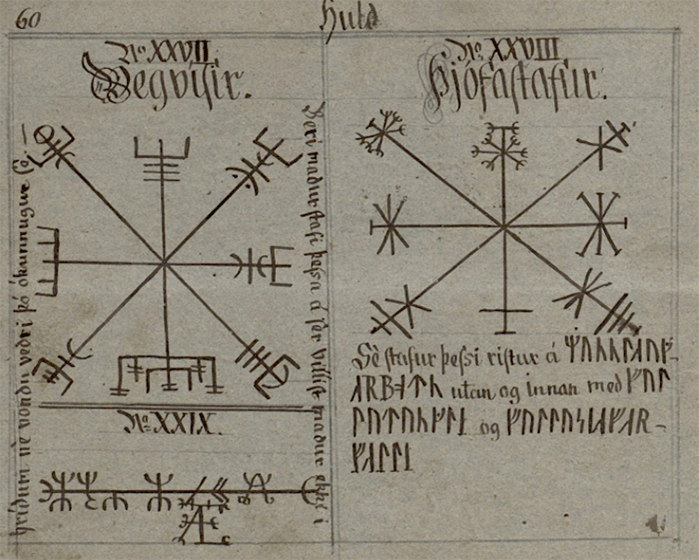 60
Huld
No. XXVII.
Vegvisir.
Beri madur stafi þessa á sèr villist madur ekki i
hridum nè vondu vedri þó ókunnugur sè.—
No. XXIX.
No. XXVIII.
Þjófastafur.
Sè stafur þessi ristur á
utan og innan med
og